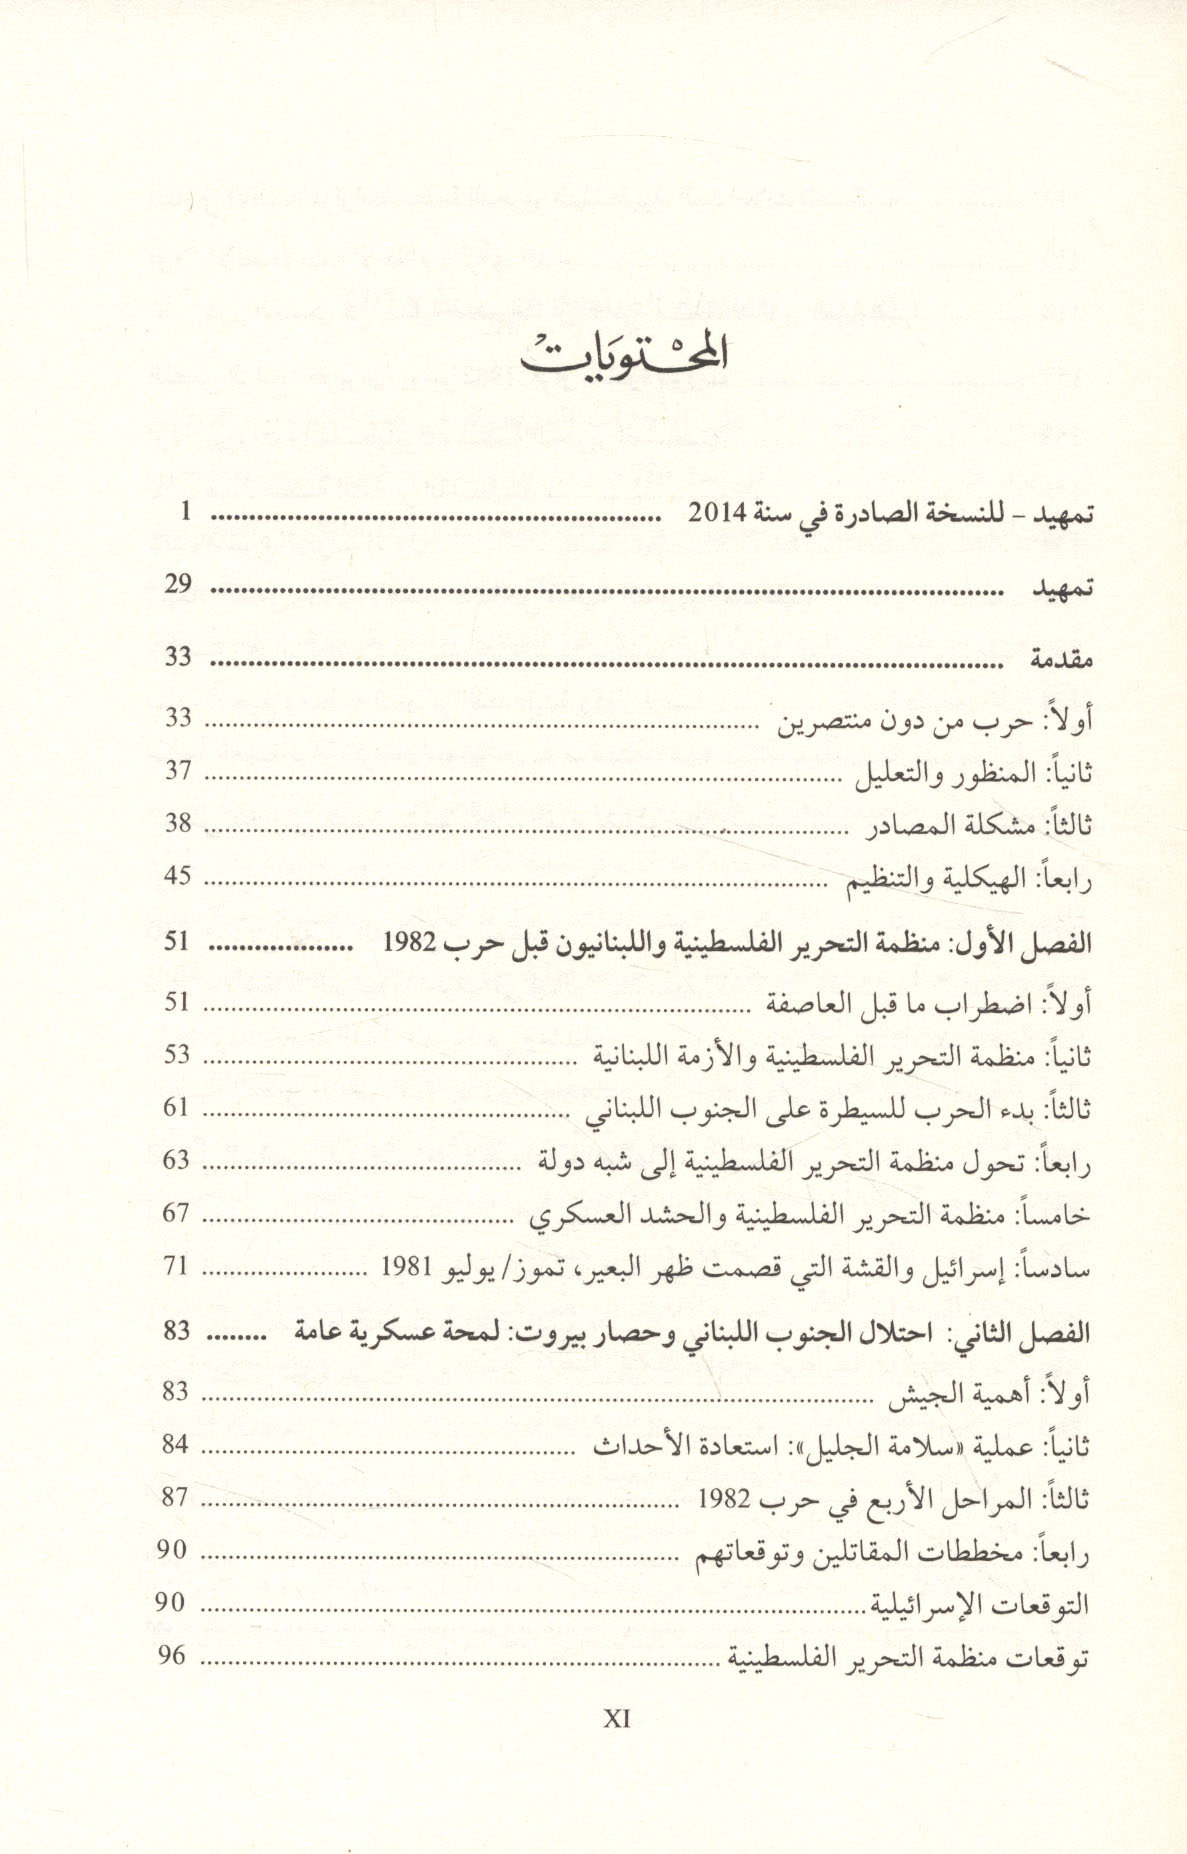 المحتويات
تمهيد – للنسخة الصادرة في سنة 2014 .......................................................... 1
تمهيد ...................................................................................................... 29
مقدمة ...................................................................................................... 33
أولاً: حرب من دون منتصرين .............................................................................. 33
ثانياً: المنظور والتعليل .......................................................................................... 37
ثالثاً: مشكلة المصادر .......................................................................................... 38
رابعاً: الهيكلية والتنظيم ........................................................................................ 45
الفصل الأول: منظمة التحرير الفلسطينية واللبنانيون قبل حرب 1982 ................... 51
أولاً: اضطراب ما قبل العاصفة ............................................................................ 51
ثانياً: منظمة التحرير الفلسطينية والأزمة اللبنانية ..................................................... 53
ثالثاً: بدء الحرب للسيطرة على الجنوب اللبناني .................................................... 61
رابعاً: تحول منظمة التحرير الفلسطينية إلى شبه دولة ............................................. 63
خامساً: منظمة التحرير الفلسطينية والحشد العسكري ............................................ 67
سادساً: إسرائيل والقشة التي قصمت ظهر البعير، تموز/ يوليو 1981 ........................ 71
الفصل الثاني: احتلال الجنوب اللبناني وحصار بيروت: لمحة عسكرية عامة ........ 83
أولاً: أهمية الجيش .............................................................................................. 83
ثانياً: عملية «سلامة الجليل»: استعادة الأحداث ..................................................... 84
ثالثاً: المراحل الأربع في حرب 1982 ................................................................... 87
رابعاً: مخططات المقاتلين وتوقعاتهم ................................................................... 90
التوقعات الإسرائيلية .............................................................................................. 90
توقعات منظمة التحرير الفلسطينية ......................................................................... 96
XI